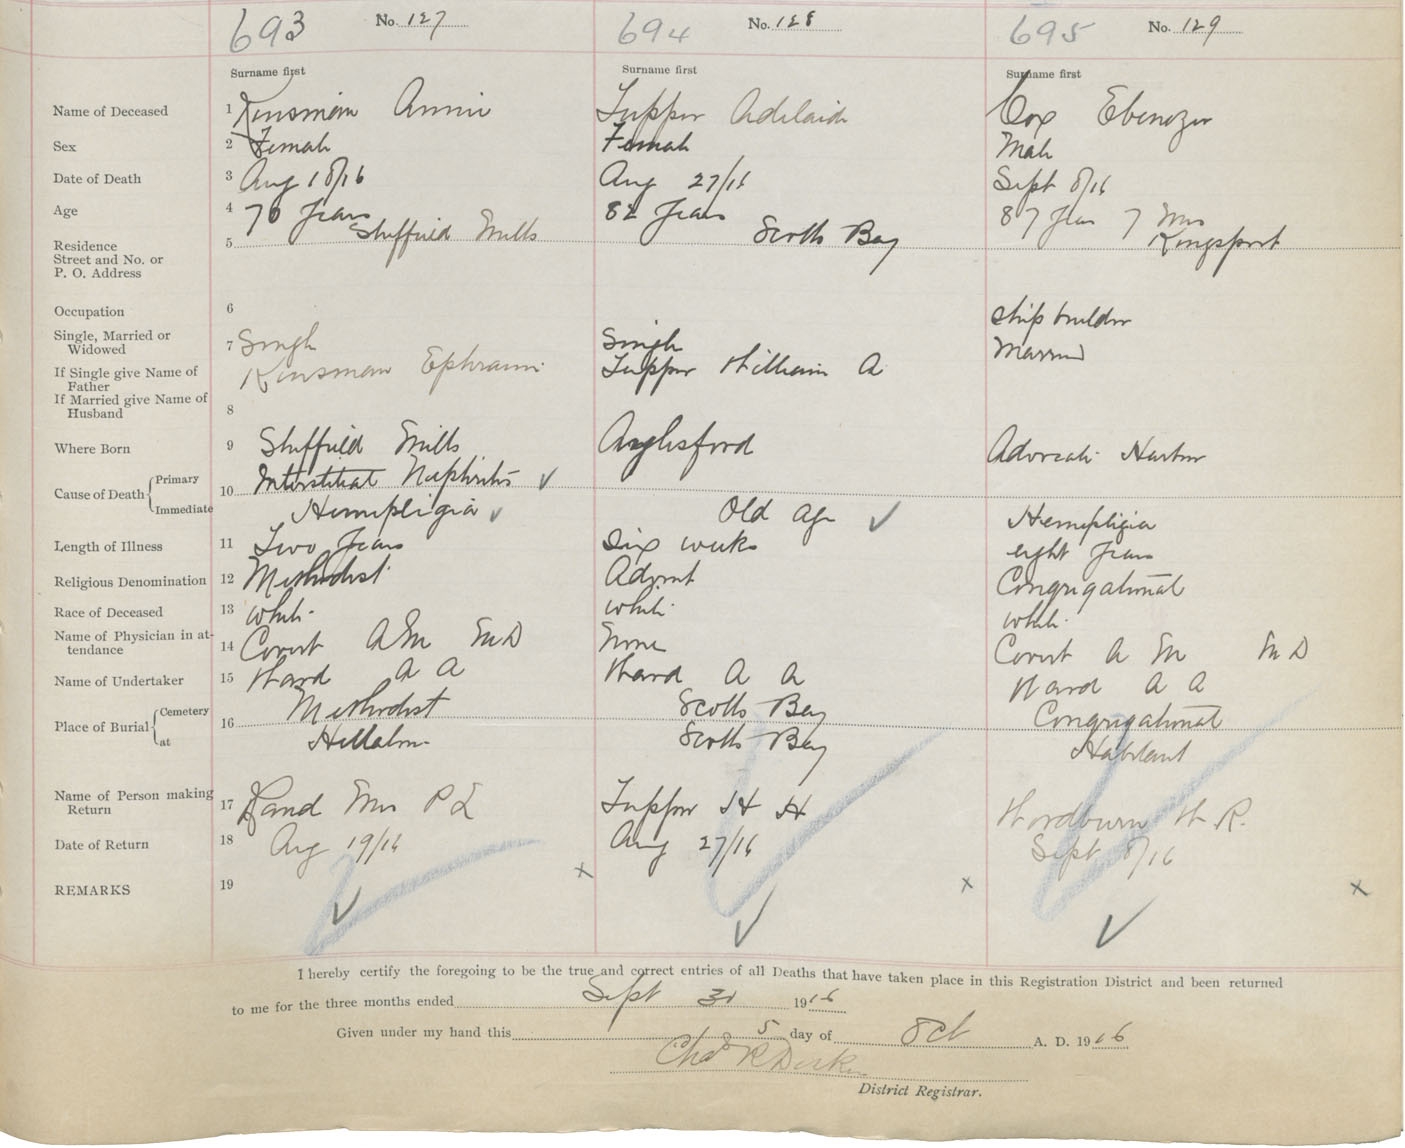 693 No. 127 694 No. 128 695 No. 129
Surname first Surname first Surname first
Name of Deceased 1 Kinsman Annie Tupper Adelaide Cox Ebenezer
Sex 2 Female Female Male
Date of Death 3 Aug 18/16 Aug 27/16 Sept 8/16
Age 4 76 years 82 years 87 years 7 Mos
Residence Street and No. or P. O. Address 5 Sheffield Mills Scotts Bay Kingsport
Occupation 6 Ship builder
Single, Married or Widowed 7 Single Single Married
If Single give Name of Father Kinsman Ephraim Tupper William A
If Married give Name of Husband 8
Where Born 9 Sheffield Mills Aylesford Advocate Harbor
Cause of Death Primary 10 Interstitial Nephritis
Immediate Hemiplegia Old age Hemiplegia
Length of Illness 11 Two years Six weeks eight years
Religious Denomination 12 Methodist Advent Congregational
Race of Deceased 13 white white white
Name of Physician in attendance 14 Covert A M M D None Covert A M M D
Name of Undertaker 15 Ward A A Ward A A Ward A A
Place of Burial Cemetery 16 Methodist Scotts Bay Congregational
at Hillaton Scotts Bay Habitant
Name of Person making Return 17 Rand Mrs P L Tupper H H Woodburn W. R.
Date of Return 18 Aug 19/16 Aug 27/16 Sept 8/16
REMARKS 19 x x x
I hereby certify the foregoing to be the true and correct entries of all Deaths that have taken place in this Registration District and been returned
to me for the three months ended Sept 30 1916
Given under my hand this 5 day of Oct A. D. 1916
Chas R
District Registrar.